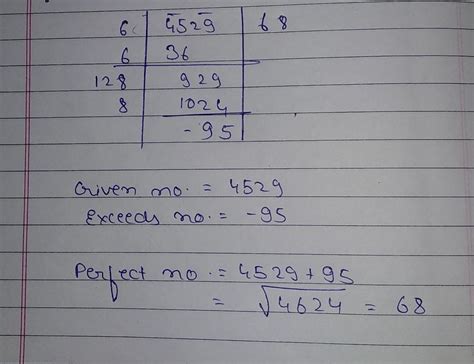 6 4529 68
6 36
128 929
8 1024
-95
Given no. = 4529
Exceeds no. = -95
Perfect no. = 4529 + 95
= √4624 = 68